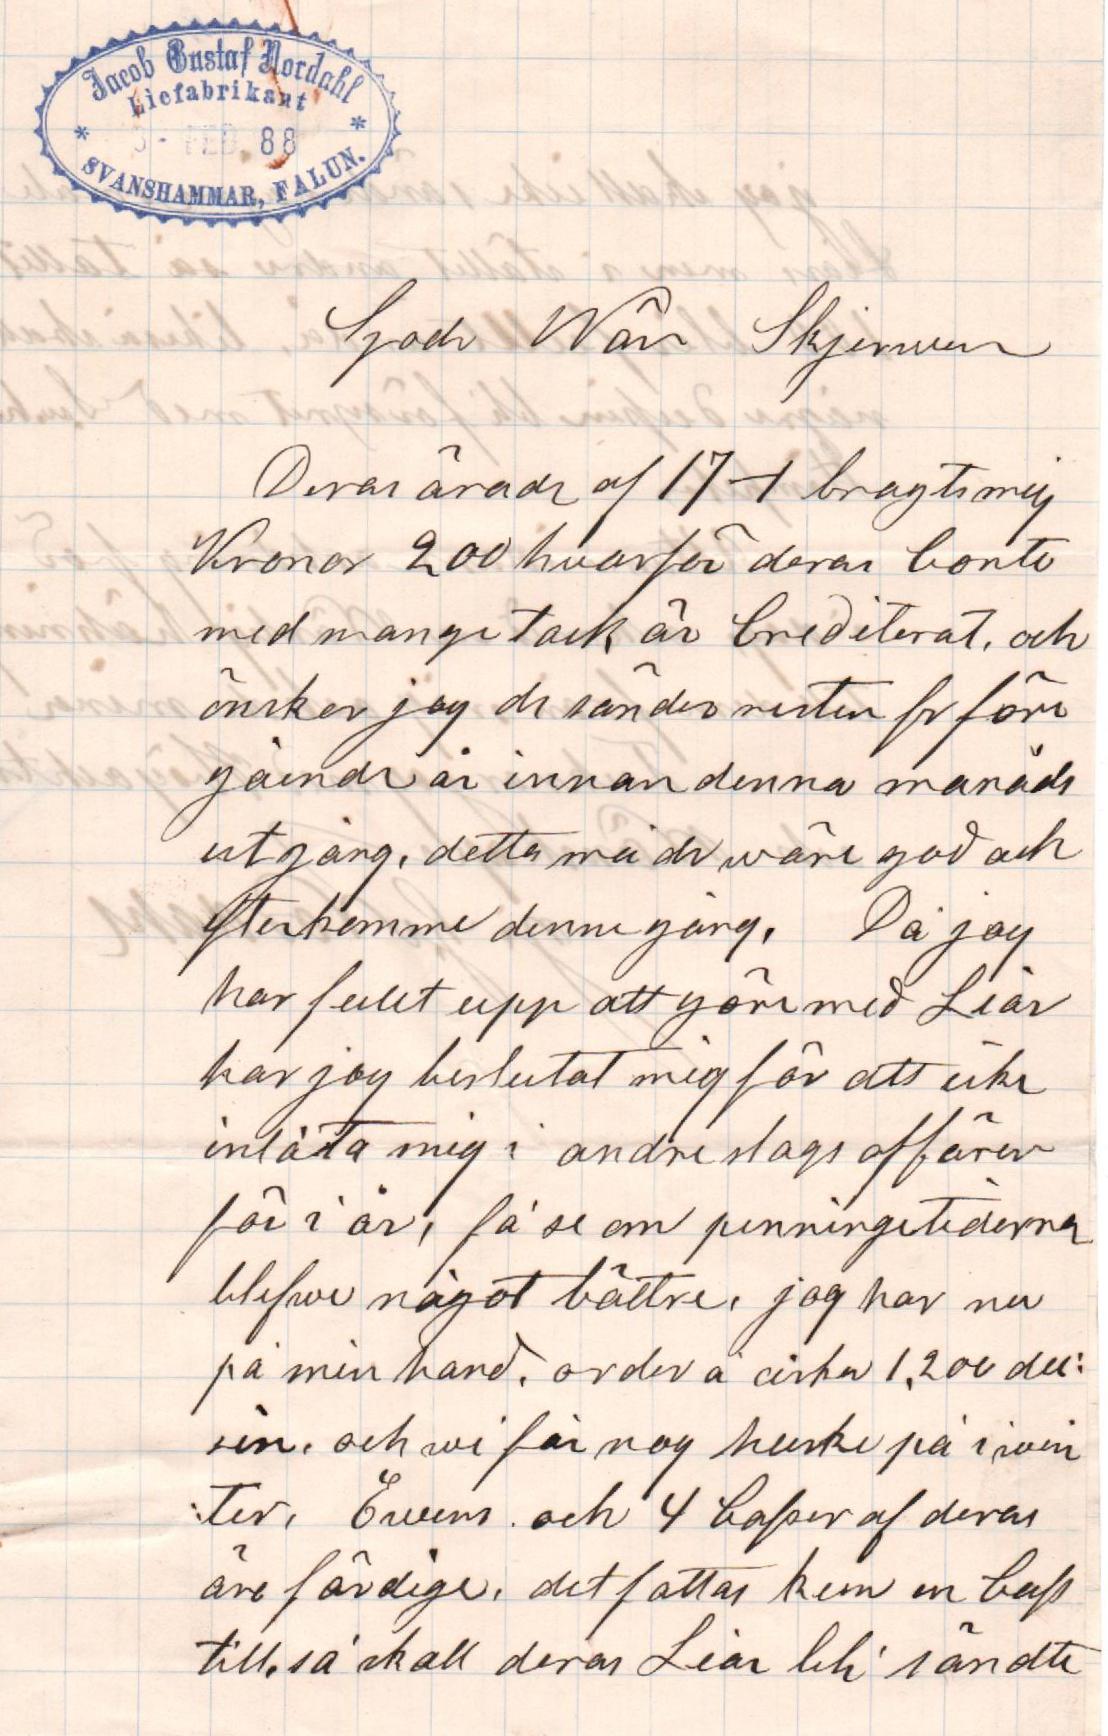 Jacob Gustaf Nordahl
Liefabrikant
FEB 88
SVANSHAMMAR, FALUN.
Gode Wän Skjerwen
Deras ärade af 17-1 bragte mig
Kronor 200 hvarför deras Conto
med mange tack är Crediterat. och
önsker jog de sänder resten fr före
gåënde år innan denna månads
utgång, detta må de wäre god och
efterkomme denne gång. Då jog
har fullt upp att göre med Liar
har jog beslutat mig för att icke
inlåta mig i andre slags affärer
för i år, få se om penningetiderna
blefwe något bättre. jog har nu
på min hand, order å cirka 1,200 dus:
sin. och wi får nog huske på i win
:ter. Ewens och 4 Casser af deras
äre färdige. det fattas kun en Cass
till, så skall deras Liar bli sändte